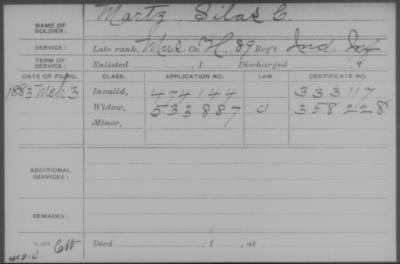 NAME OF SOLDIER: Martz, Silas C.
SERVICE: Late rank, Mus. Co. H, 89 Reg't Ind. Inf
TERM OF SERVICE: Enlisted , 1 Discharged , 1
DATE OF FILING. CLASS. APPLICATION NO. LAW. CERTIFICATE NO.
1883 Mch 3 Invalid, 474144 333117
Widow, 533887 358228
Minor,
ADDITIONAL SERVICES:
REMARKS:
Died , 1 , at